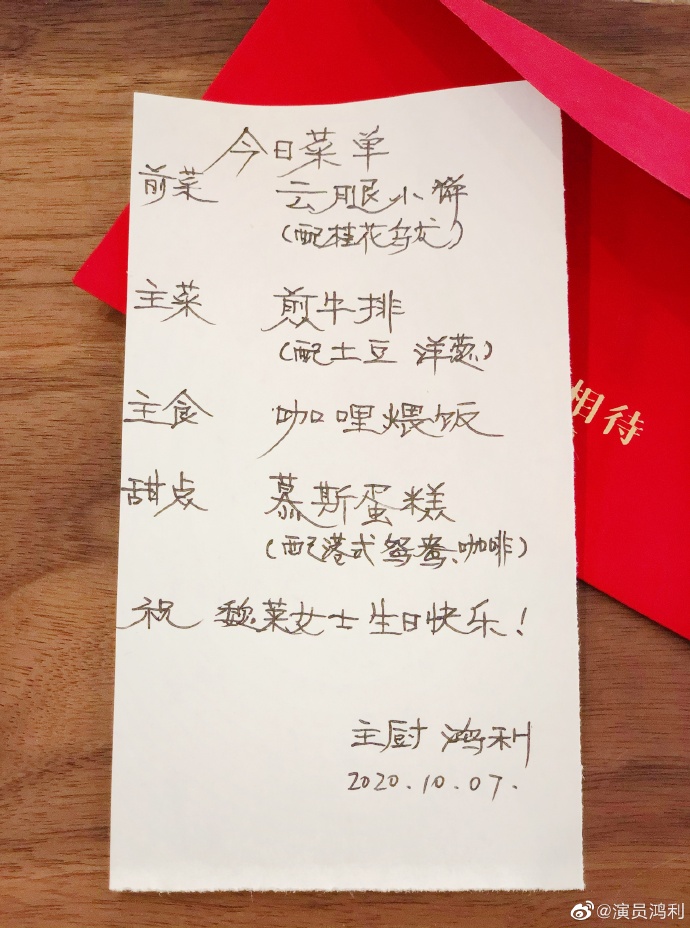 今日菜单
前菜 云腿小饼
(配桂花乌龙)
主菜 煎牛排
(配土豆 洋葱)
主食 咖哩煨饭
甜点 慕斯蛋糕
(配港式鸳鸯、咖啡)
祝 魏莱女士生日快乐!
主厨 鸿利
2020.10.07.
相待
@演员鸿利